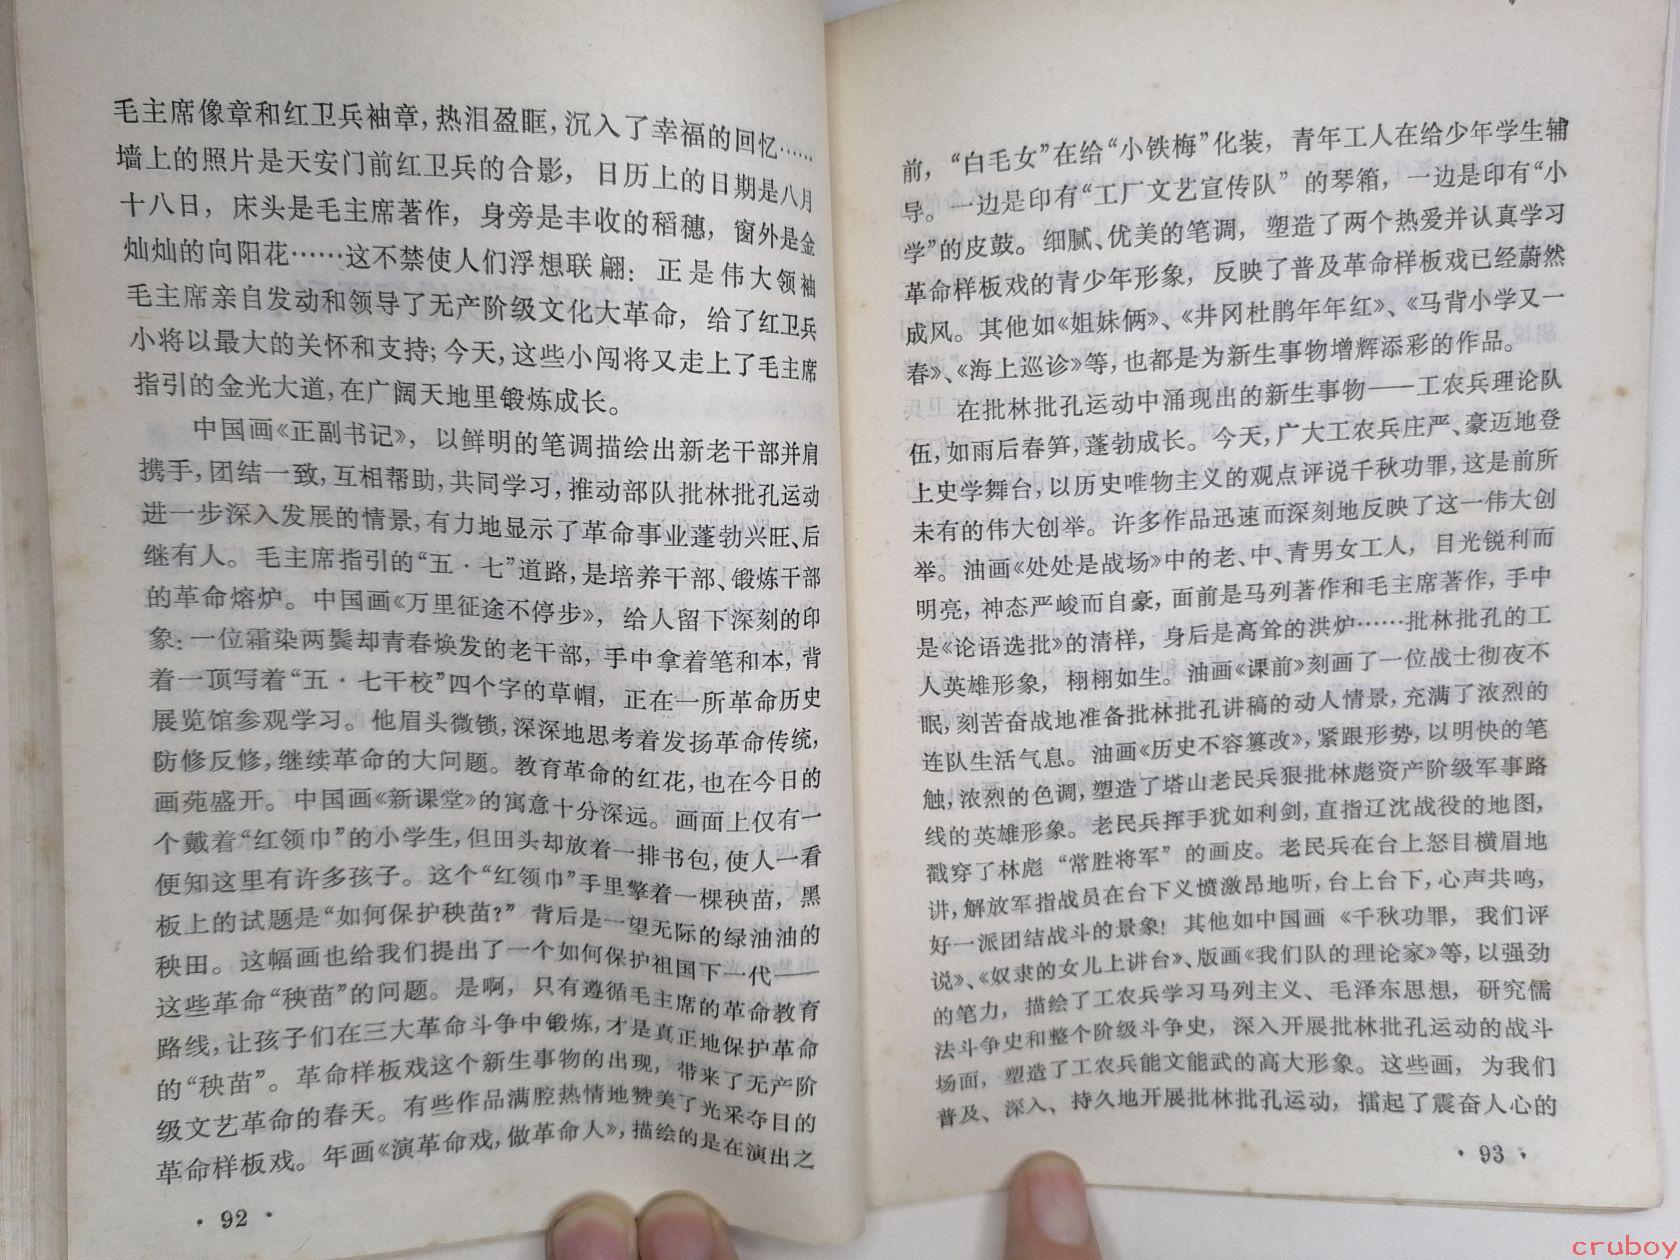 毛主席像章和红卫兵袖章，热泪盈眶，沉入了幸福的回忆……
墙上的照片是天安门前红卫兵的合影，日历上的日期是八月
十八日，床头是毛主席著作，身旁是丰收的稻穗，窗外是金
灿灿的向阳花……这不禁使人们浮想联翩：正是伟大领袖
毛主席亲自发动和领导了无产阶级文化大革命，给了红卫兵
小将以最大的关怀和支持；今天，这些小闯将又走上了毛主席
指引的金光大道，在广阔天地里锻炼成长。
中国画《正副书记》，以鲜明的笔调描绘出新老干部并肩
携手，团结一致，互相帮助，共同学习，推动部队批林批孔运动
进一步深入发展的情景，有力地显示了革命事业蓬勃兴旺、后
继有人。毛主席指引的“五·七”道路，是培养干部、锻炼干部
的革命熔炉。中国画《万里征途不停步》，给人留下深刻的印
象：一位霜染两鬓却青春焕发的老干部，手中拿着笔和本，背
着一顶写着“五·七干校”四个字的草帽，正在一所革命历史
展览馆参观学习。他眉头微锁，深深地思考着发扬革命传统，
防修反修，继续革命的大问题。教育革命的红花，也在今日的
画苑盛开。中国画《新课堂》的寓意十分深远。画面上仅有一
个戴着“红领巾”的小学生，但田头却放着一排书包，使人一看
便知这里有许多孩子。这个“红领巾”手里擎着一棵秧苗，黑
板上的试题是“如何保护秧苗？”背后是一望无际的绿油油的
秧田。这幅画也给我们提出了一个如何保护祖国下一代——
这些革命“秧苗”的问题。是啊，只有遵循毛主席的革命教育
路线，让孩子们在三大革命斗争中锻炼，才是真正地保护革命
的“秧苗”。革命样板戏这个新生事物的出现，带来了无产阶
级文艺革命的春天。有些作品满腔热情地赞美了光采夺目的
革命样板戏。年画《演革命戏，做革命人》，描绘的是在演出之
· 92 ·
前，“白毛女”在给“小铁梅”化装，青年工人在给少年学生辅
导。一边是印有“工厂文艺宣传队”的琴箱，一边是印有“小
学”的皮鼓。细腻、优美的笔调，塑造了两个热爱并认真学习
革命样板戏的青少年形象，反映了普及革命样板戏已经蔚然
成风。其他如《姐妹俩》、《井冈杜鹃年年红》、《马背小学又一
春》、《海上巡诊》等，也都是为新生事物增辉添彩的作品。
在批林批孔运动中涌现出的新生事物——工农兵理论队
伍，如雨后春笋，蓬勃成长。今天，广大工农兵庄严、豪迈地登
上史学舞台，以历史唯物主义的观点评说千秋功罪，这是前所
未有的伟大创举。许多作品迅速而深刻地反映了这一伟大创
举。油画《处处是战场》中的老、中、青男女工人，目光锐利而
明亮，神态严峻而自豪，面前是马列著作和毛主席著作，手中
是《论语选批》的清样，身后是高耸的洪炉……批林批孔的工
人英雄形象，栩栩如生。油画《课前》刻画了一位战士彻夜不
眠，刻苦奋战地准备批林批孔讲稿的动人情景，充满了浓烈的
连队生活气息。油画《历史不容篡改》，紧跟形势，以明快的笔
触，浓烈的色调，塑造了塔山老民兵狠批林彪资产阶级军事路
线的英雄形象。老民兵挥手犹如利剑，直指辽沈战役的地图，
戳穿了林彪“常胜将军”的画皮。老民兵在台上怒目横眉地
讲，解放军指战员在台下义愤激昂地听，台上台下，心声共鸣，
好一派团结战斗的景象！其他如中国画《千秋功罪，我们评
说》、《奴隶的女儿上讲台》、版画《我们队的理论家》等，以强劲
的笔力，描绘了工农兵学习马列主义、毛泽东思想，研究儒
法斗争史和整个阶级斗争史，深入开展批林批孔运动的战斗
场面，塑造了工农兵能文能武的高大形象。这些画，为我们
普及、深入、持久地开展批林批孔运动，擂起了震奋人心的
· 93 ·
cruboy